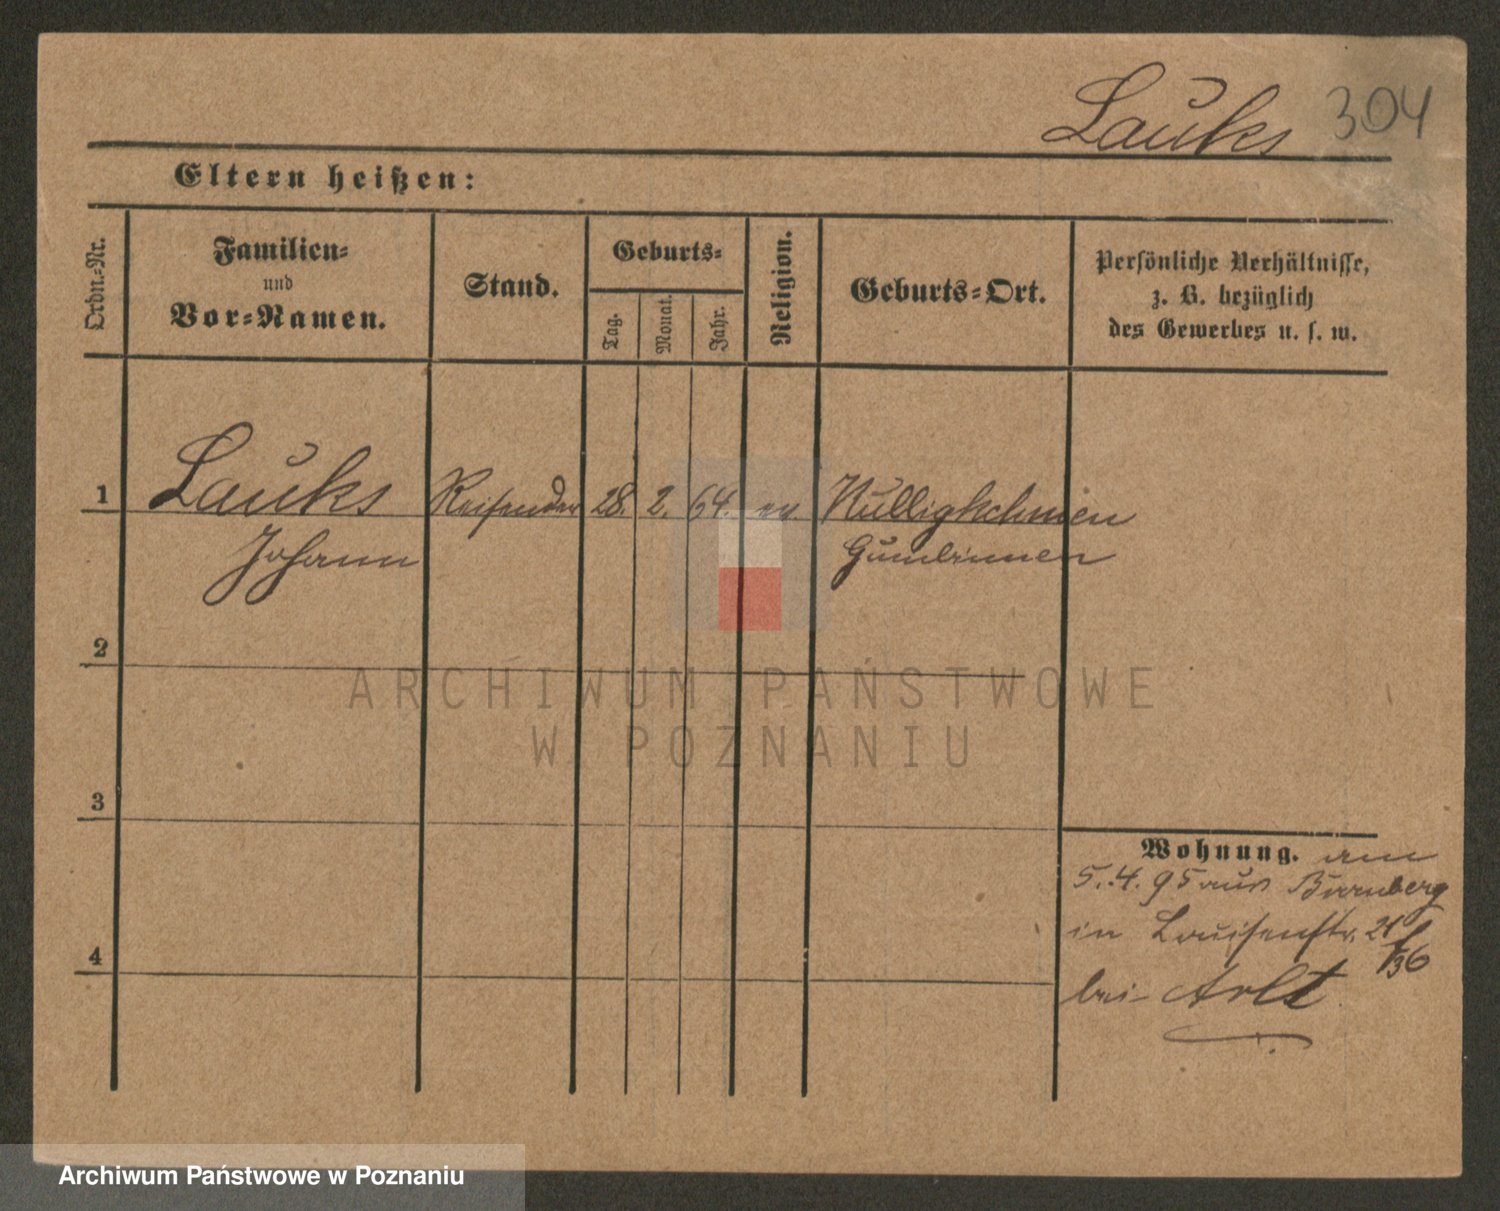 Lauks 304
Eltern heißen:
Ordn.-Nr.
Familien-
und
Vor-Namen.
Stand.
Geburts-
Tag.
Monat.
Jahr.
Religion.
Geburts-Ort.
Persönliche Verhältnisse,
z. B. bezüglich
des Gewerbes u. s. w.
1 Lauks Reisender 28. 2. 64. ev. Nulligkehmen
Johann Gumbinnen
2
3
4
Wohnung. am
5.4.95 aus
in Louisenstr. 21
bei Arlt
ARCHIWUM PAŃSTWOWE
W POZNANIU
Archiwum Państwowe w Poznaniu